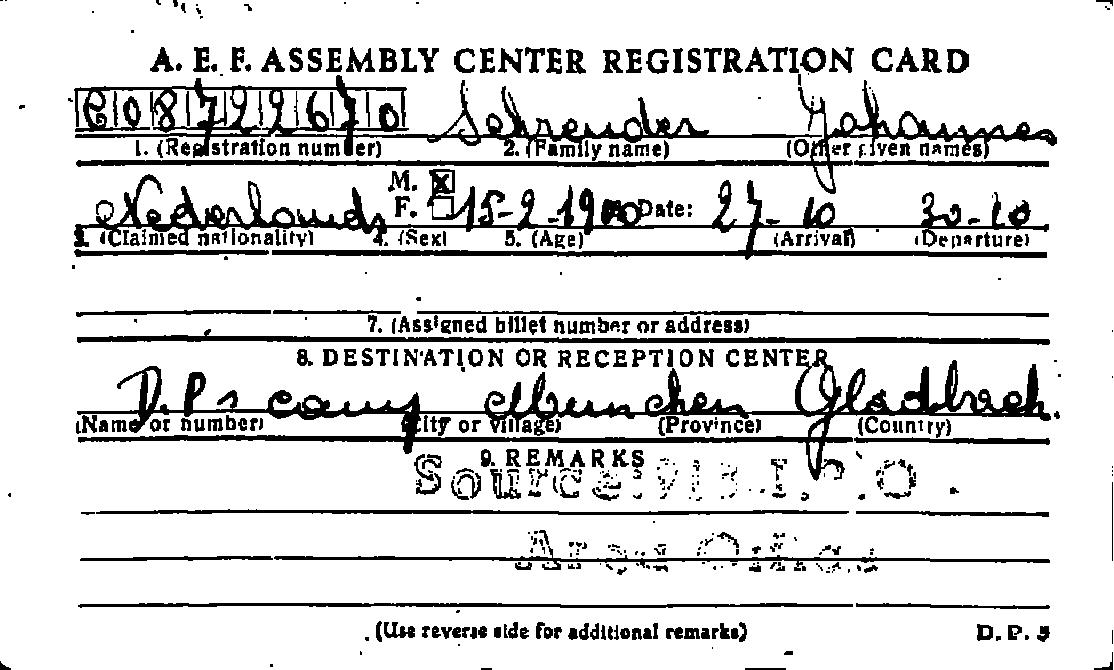 A. E. F. ASSEMBLY CENTER REGISTRATION CARD
C08722670 Schreuder Johannes
1. (Registration number) 2. (Family name) (Other given names)
Nederlands M. X F. 15-2-1900 Date: 27-10 30-10
3. (Claimed nationality) 4. (Sex) 5. (Age) (Arrival) (Departure)
7. (Assigned billet number or address)
8. DESTINATION OR RECEPTION CENTER
D.P s camp Munchen Gladbach.
(Name or number) (City or village) (Province) (Country)
9. REMARKS
Source: 913.I.R.O.
Area Office
(Use reverse side for additional remarks) D. P. 5